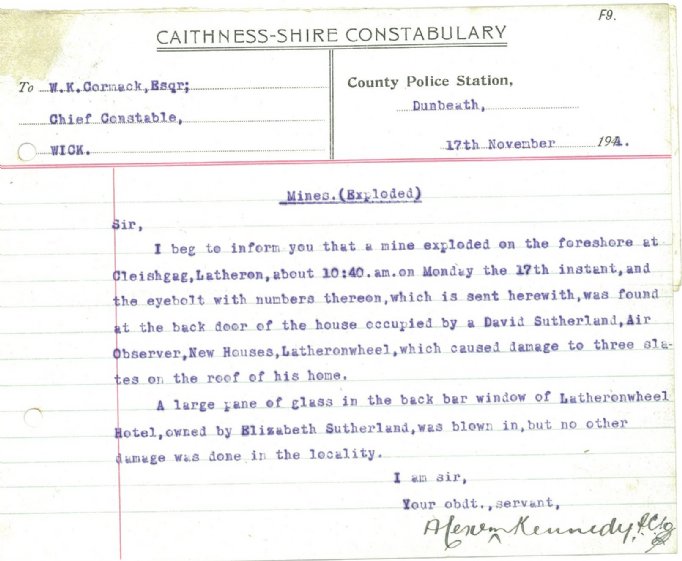 F9.
CAITHNESS-SHIRE CONSTABULARY
To W.K.Cormack,Esqr;
Chief Constable,
WICK.
County Police Station,
Dunbeath,
17th November 1941.
Mines.(Exploded)
Sir,
I beg to inform you that a mine exploded on the foreshore at
Cleishgag,Latheron,about 10:40.am.on Monday the 17th instant,and
the eyebolt with numbers thereon,which is sent herewith,was found
at the back door of the house occupied by a David Sutherland,Air
Observer,New Houses,Latheronwheel,which caused damage to three sla-
tes on the roof of his home.
A large pane of glass in the back bar window of Latheronwheel
Hotel,owned by Elizabeth Sutherland,was blown in,but no other
damage was done in the locality.
I am sir,
Your obdt.,servant,
Kennedy,